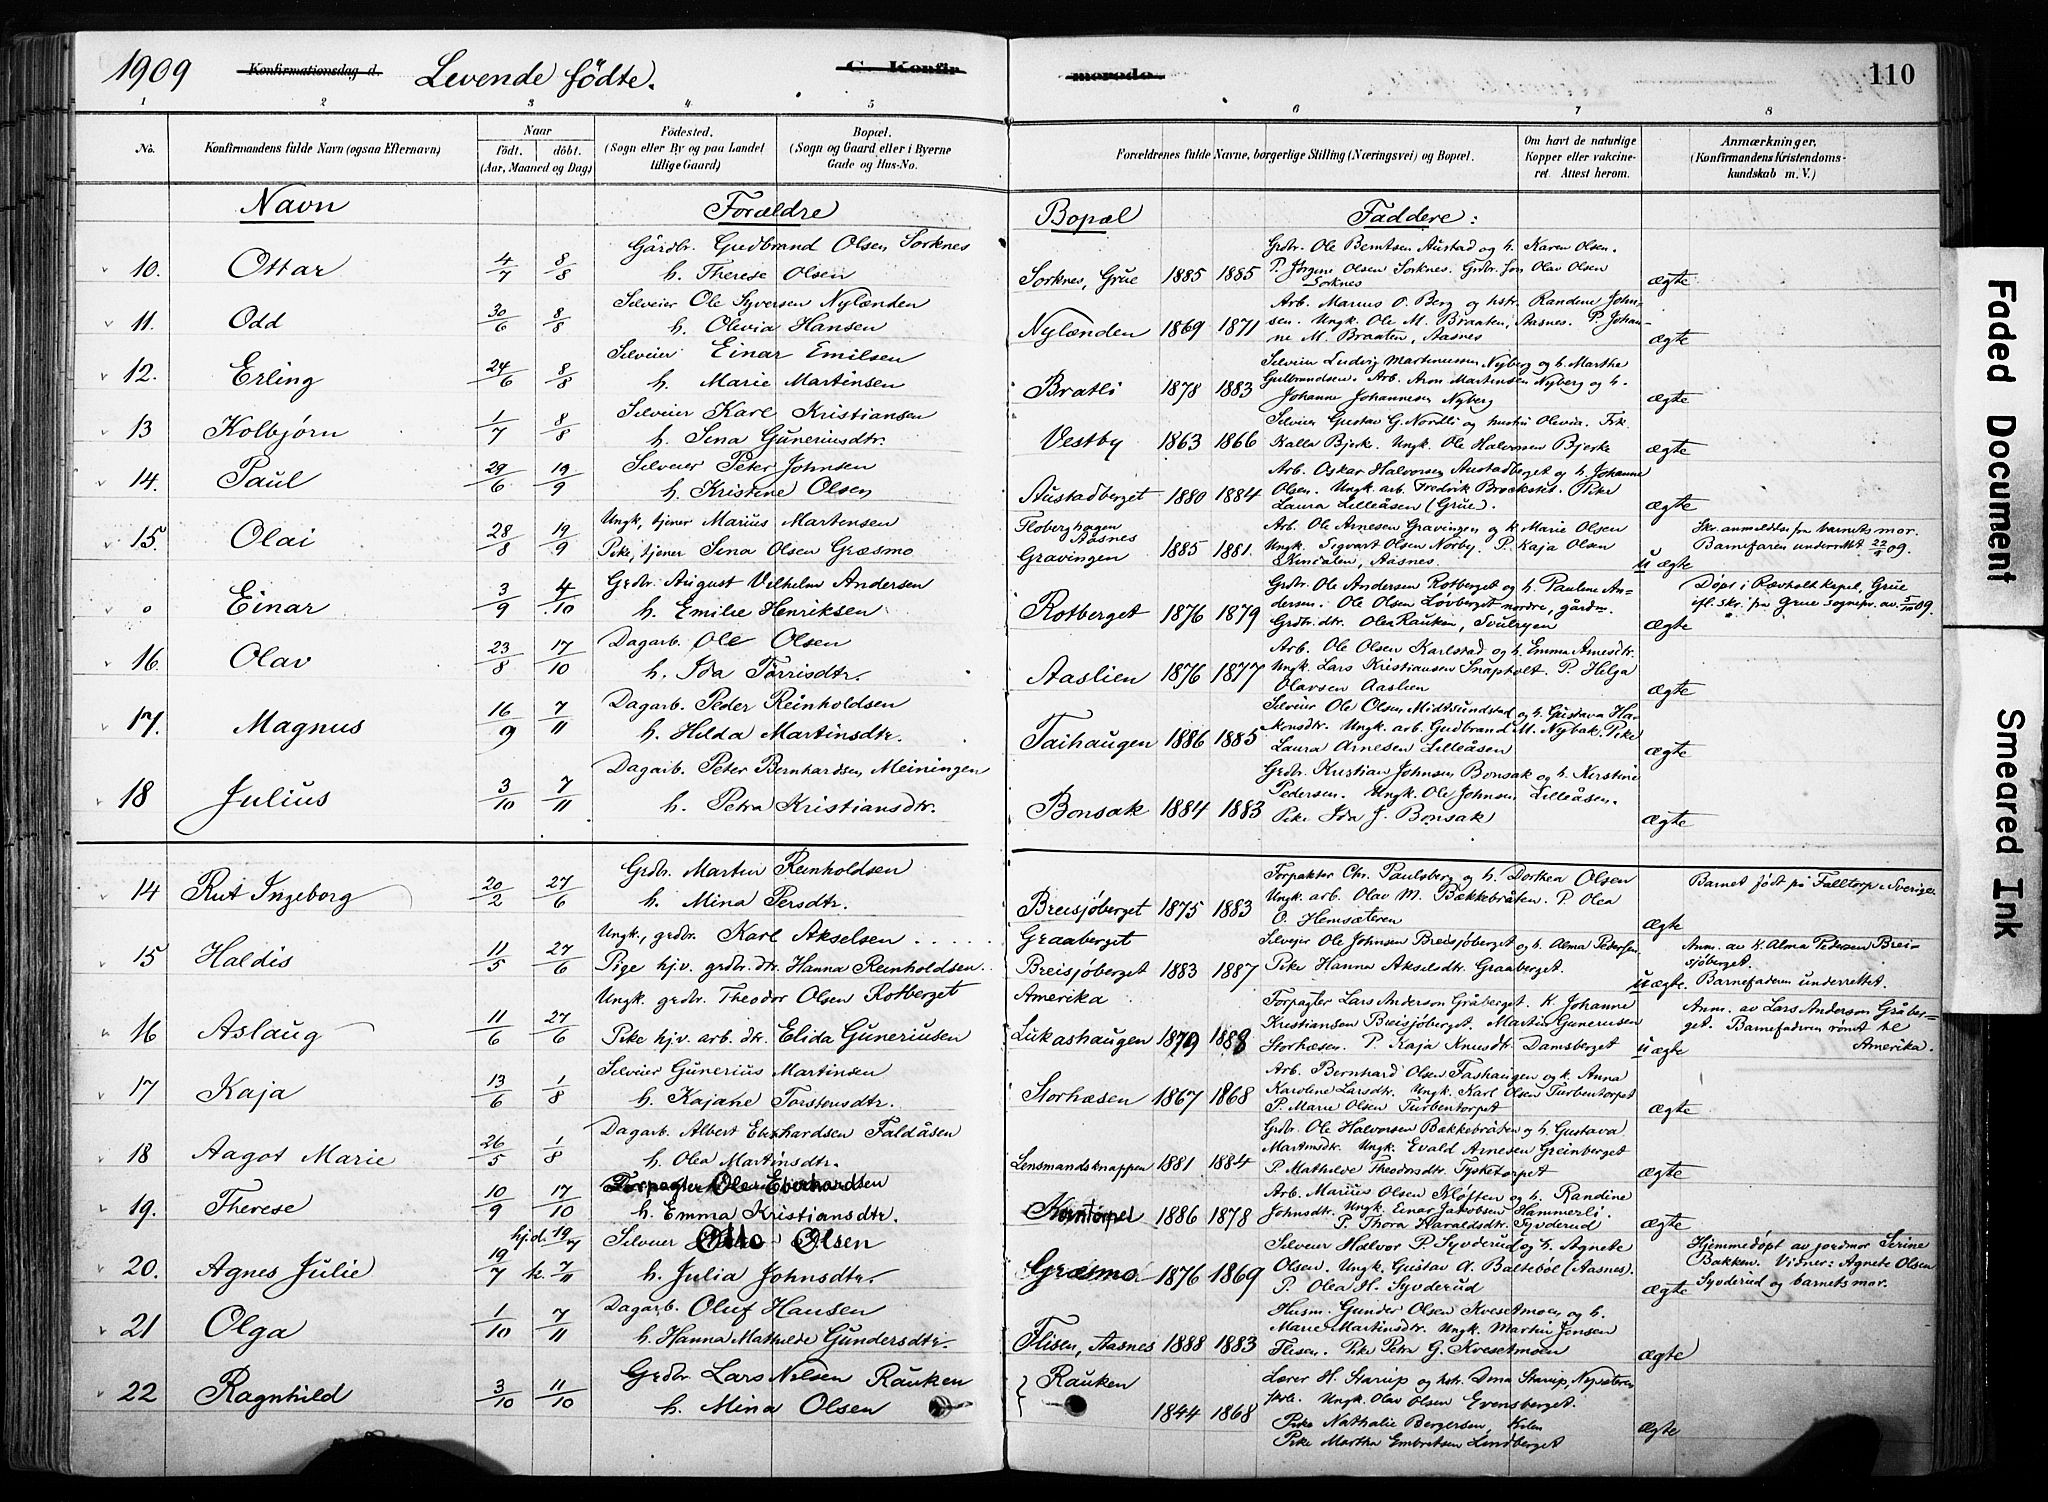 1909 Konfirmationsdag d. Levende fødte. C. Konfir
merede. 110
1 2 3 4 5
6 7 8
No. Konfirmandens fulde Navn (ogsaa Efternavn) Naar født. døbt. (Aar, Maaned og Dag) Fødested. (Sogn eller By og paa Landet tillige Gaard) Bopæl. (Sogn og Gaard eller i Byerne Gade og Hus-No.
Forældrenes fulde Navne, borgerlige Stilling (Næringsvei) og Bopæl. Om havt de naturlige Kopper eller vakcineret. Attest herom. Anmærkninger, (Konfirmandens Kristendomskundskab m. V.)
Navn Forældre Bopæl Faddere:
10. Ottar 4/7 8/8 Gårdbr. Gudbrand Olsen Sorknes
h. Therese Olsen
Sorknes, Grue 1885 1885
Grdbr. Ole Berntsen Austad og h. Karen Olsen.
P. Jørgine Olsen Sorknes. Grdbr. Jon Olav Olsen
Sorknes ægte
11. Odd 30/6 8/8 Selveier Ole Syversen Nylænden
h. Olivia Hansen
Nylænden 1869 1871
Arb. Marius O. Berg og hstr. Randine John-
sen. Ungk. Ole M. Braaten, Aasnes. P. Johan-
ne M. Braaten, Aasnes ægte
12. Erling 24/6 8/8 Selveier Einar Emilsen
h. Marie Martinsen
Bratli 1878 1883
Selveier Ludvig Martinussen Nyberg og h. Marthe
Gulbrandsen. Arb. Aron Martinsen Nyberg og h.
Johanne Johannesen Nyberg ægte
13 Kolbjørn 1/7 8/8 Selveier Karl Kristiansen
h. Sina Guneriusdtr.
Vestby 1863 1866
Selveier Gustav G. Nordli og hustru Olivia. Frk.
Kalla Bjerke. Ungk. Ole Halvorsen Bjerke ægte
14. Paul 29/6 19/9 Selveier Peter Johnsen
h. Kristine Olsen
Austadberget 1880 1884
Arb. Oskar Halvorsen Austadberget og h. Johanne
Olsen. Ungk. arb. Fredrik Brockstet. Pike
Laura Lilleåsen (Grue). ægte
15. Olai 28/8 19/9 Ungk. tjener Marius Martinsen
Pike, tjener Sina Olsen Græsmo
Floberghagen
Aasnes
Gravingen 1885 1881.
Arb. Ole Arnesen Gravingen og h. Marie Olsen
Ungk. Sigvart Olsen Norby. P. Kaja Olsen
Kindalen, Aasnes. uægte
Skr. anmeldelse fra barnets mor.
Barnefaren underrettet 22/9 09.
o Einar 3/9 4/10 Grdbr. August Vilhelm Andersen
h. Emilie Henriksen
Rotberget 1876 1879
Grdbr. Ole Andersen Rotberget og h. Pauline An-
dersen. Ole Olsen Løvberget nordre, gårdm.
Grdbr.dtr. Olea Rauken, Svulryen ægte
Døpt i Rævholt kapel, Grue
ifl. skr. fra Grue sognepr. av 5/10 09.
16. Olav 23/8 17/10 Dagarb. Ole Olsen
h. Ida Torrisdtr.
Aaslien 1876 1877
Arb. Ole Olsen Karlstad og h. Emma Arnesdtr.
Ungk. Lars Kristiansen Snapholt. P. Helga
Olavsen Aaslien ægte
17. Magnus 16/9 7/11 Dagarb. Peder Reinholdsen
h. Hilda Martinsdtr.
Taihaugen 1886 1885
Selveier Ole Olsen Midtsundstad og h. Gustava Ha-
konsdtr. Ungk. arb. Gudbrand M. Nybak. Pike
Laura Arnesen Lilleåsen ægte
18 Julius 3/10 7/11 Dagarb. Peter Bernhardsen Meiningen
h. Petra Kristiansdtr.
Bonsak 1884 1883
Grdbr. Kristian Johnsen Bonsak og h. Kirstine
Pedersen. Ungk. Ole Johnsen Lilleåsen.
Pike Ida J. Bonsak ægte
14 Rut Ingeborg 20/2 27/6 Grdbr. Martin Reinholdsen
h. Mina Persdtr.
Breisjøberget 1875 1883
Forpakter Chr. Paulsberg og h. Dorthea Olsen
Ungk. arb. Olav M. Bækkebråten. P. Olea
O. Hemsæteren ægte
Barnet født på Falltorp i Sverige
15 Haldis 11/5 27/6 Ungk., grdbr. Karl Akselsen
Pige hj.v. grdbr. dtr. Hanna Reinholdsen.
Graaberget
Breisjøberget 1883 1887
Selveier Ole Johnsen Breisjøberget og h. Alma Pedersen
Pike Hanna Akselsdtr. Graaberget. uægte.
Anm. av h. Alma Pedersen Brei-
sjøberget.
Barnefaderen underrettet.
16 Aslaug 11/6 27/6 Ungk. grdbr. Theodor Olsen Rotberget
Pike hj.v. arb. dtr. Elida Guneriusen
Amerika
Lukashaugen 1879 1888
Forpagter Lars Anderson Gråberget. K. Johanne
Kristiansen Breisjøberget. Martin Guneriusen
Storhæsen. P. Kaja Knusdtr. Damsberget uægte
Anm. av Lars Anderson Gråber-
get. Barnefaderen rømt til
Amerika.
17 Kaja 13/6 1/8 Selveier Gunerius Martinsen
h. Kajane Torstensdtr.
Storhæsen 1867 1868
Arb. Bernhard Olsen Fashaugen og h. Anna
Karoline Larsdtr. Ungk. Karl Olsen Furbentorpet
P. Marie Olsen Furbentorpet ægte
18 Aagot Marie 26/5 1/8 Dagarb. Albert Eberhardsen Faldåsen
h. Olea Martinsdtr.
Lensmandsknappen 1881 1884
Grdbr. Ole Halvorsen Bækkebråten og h. Gustava
Martinsdtr. Ungk. Evald Arnesen Greinberget
P. Mathilde Theodorsdtr. Tysketorpet ægte
19. Therese 10/9 17/10 Forpagter Ole Eberhardsen
h. Emma Kristiansdtr.
Korntorpet 1886 1878
Arb. Marius Olsen Kløften og h. Randine
Johnsdtr. Ungk. Einar Jacobsen Hammerli.
P. Thora Haraldsdtr. Syvderud ægte
20. Agnes Julie 19/7 hj.d. 19/7 k. 7/11 Selveier Otto Olsen
h. Julia Johnsdtr.
Græsmo 1876 1869
Selveier Halvor P. Syvderud og h. Agnete
Olsen. Ungk. Gustav A. Baltebøl (Aasnes).
P. Olea H. Syvderud ægte
Hjemmedøpt av jordmor Serine
Bakken. Vidner: Agnete Olsen
Syvderud og barnets mor.
21 Olga 1/10 7/11 Dagarb. Oluf Hansen
h. Hanna Mathilde Gundersdtr.
Flisen, Aasnes 1888 1883
Husm. Gunder Olsen Kvesetmoen og h.
Marie Martinsdtr. Ungk. Martin Jensen
Flisen. Pike Petra G. Kvesetmoen ægte
22 Ragnhild 3/10 11/10 Grdbr Lars Nilsen Rauken
h. Mina Olsen
Rauken
1844 1868
Lærer H. Starup og hstr. Dina Starup, Nysæteren
skole. Ungk. Olav Olsen Evensberget.
Pike Nathalie Bergersen, Kilen
Pike Martha Embretsen Lindberget ægte
Faded Document
Smeared Ink